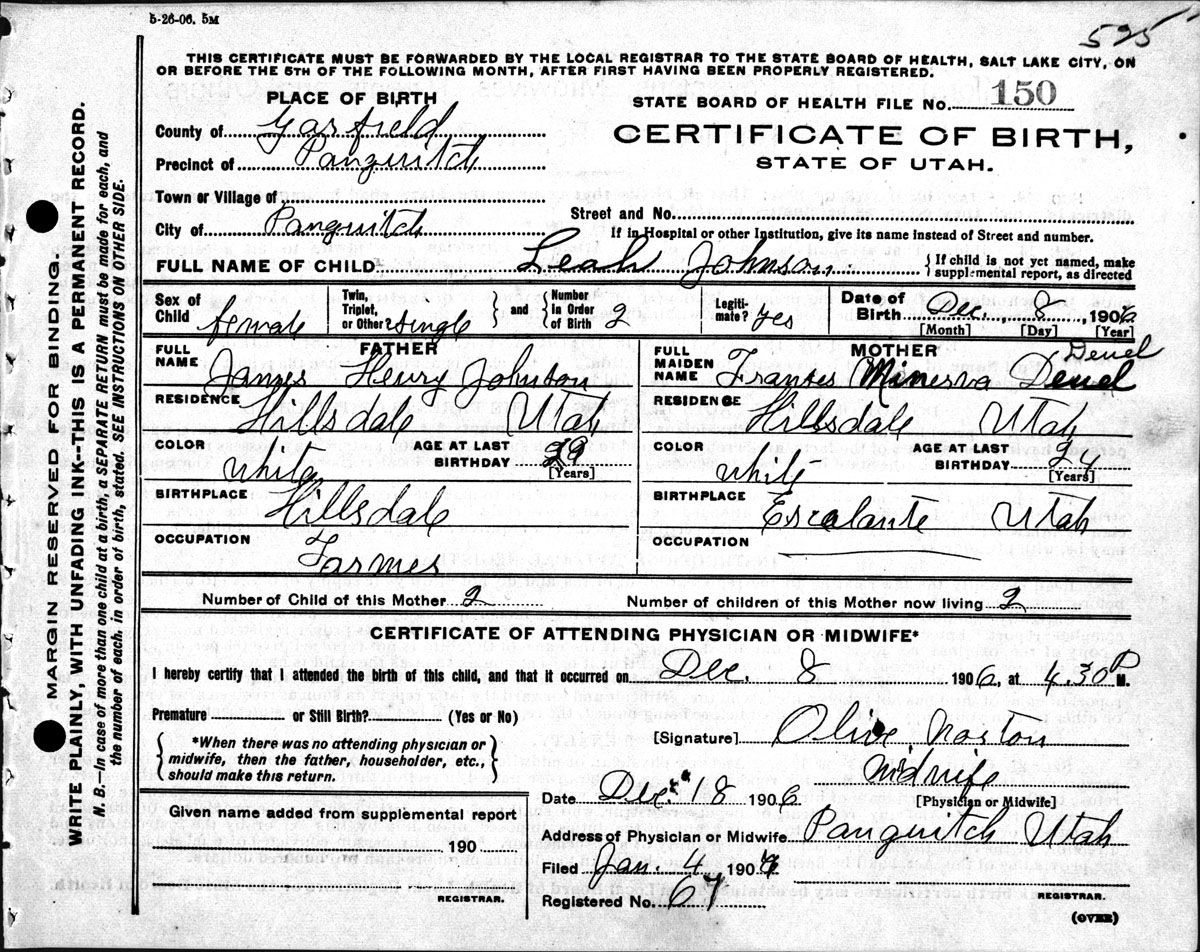 5-26-06. 5M
525
THIS CERTIFICATE MUST BE FORWARDED BY THE LOCAL REGISTRAR TO THE STATE BOARD OF HEALTH, SALT LAKE CITY, ON
OR BEFORE THE 5TH OF THE FOLLOWING MONTH, AFTER FIRST HAVING BEEN PROPERLY REGISTERED.
PLACE OF BIRTH
County of Garfield
Precinct of Panguitch
Town or Village of
City of Panguitch
STATE BOARD OF HEALTH FILE No. 150
CERTIFICATE OF BIRTH,
STATE OF UTAH.
Street and No.
If in Hospital or other Institution, give its name instead of Street and number.
FULL NAME OF CHILD Leah Johnson { If child is not yet named, make supplemental report, as directed
Sex of Child female
Twin, Triplet, or Other? Single } and { Number In Order of Birth 2
Legitimate? yes
Date of Birth Dec. 8 1906
[Month] [Day] [Year]
FATHER
FULL NAME James Henry Johnson
RESIDENCE Hillsdale Utah
COLOR White AGE AT LAST BIRTHDAY 29
[Years]
BIRTHPLACE Hillsdale
OCCUPATION Farmer
MOTHER
Deuel
FULL MAIDEN NAME Franses Minerva Deuel
RESIDENCE Hillsdale Utah
COLOR White AGE AT LAST BIRTHDAY 24
[Years]
BIRTHPLACE Escalante Utah
OCCUPATION
Number of Child of this Mother 2 Number of children of this Mother now living 2
CERTIFICATE OF ATTENDING PHYSICIAN OR MIDWIFE*
I hereby certify that I attended the birth of this child, and that it occurred on Dec. 8 1906, at 4.30 P M.
Premature or Still Birth? (Yes or No)
{ *When there was no attending physician or
midwife, then the father, householder, etc.,
should make this return. }
Given name added from supplemental report
190
REGISTRAR.
[Signature] Olive Norton
Midwife
[Physician or Midwife]
Date Dec. 18 1906
Address of Physician or Midwife Panguitch Utah
Filed Jan. 4 1907
Registered No. 67
REGISTRAR.
(OVER)
MARGIN RESERVED FOR BINDING.
WRITE PLAINLY, WITH UNFADING INK--THIS IS A PERMANENT RECORD.
N. B. In case of more than one child at a birth, a SEPARATE RETURN must be made for each, and
the number of each, in order of birth, stated. SEE INSTRUCTIONS ON OTHER SIDE.